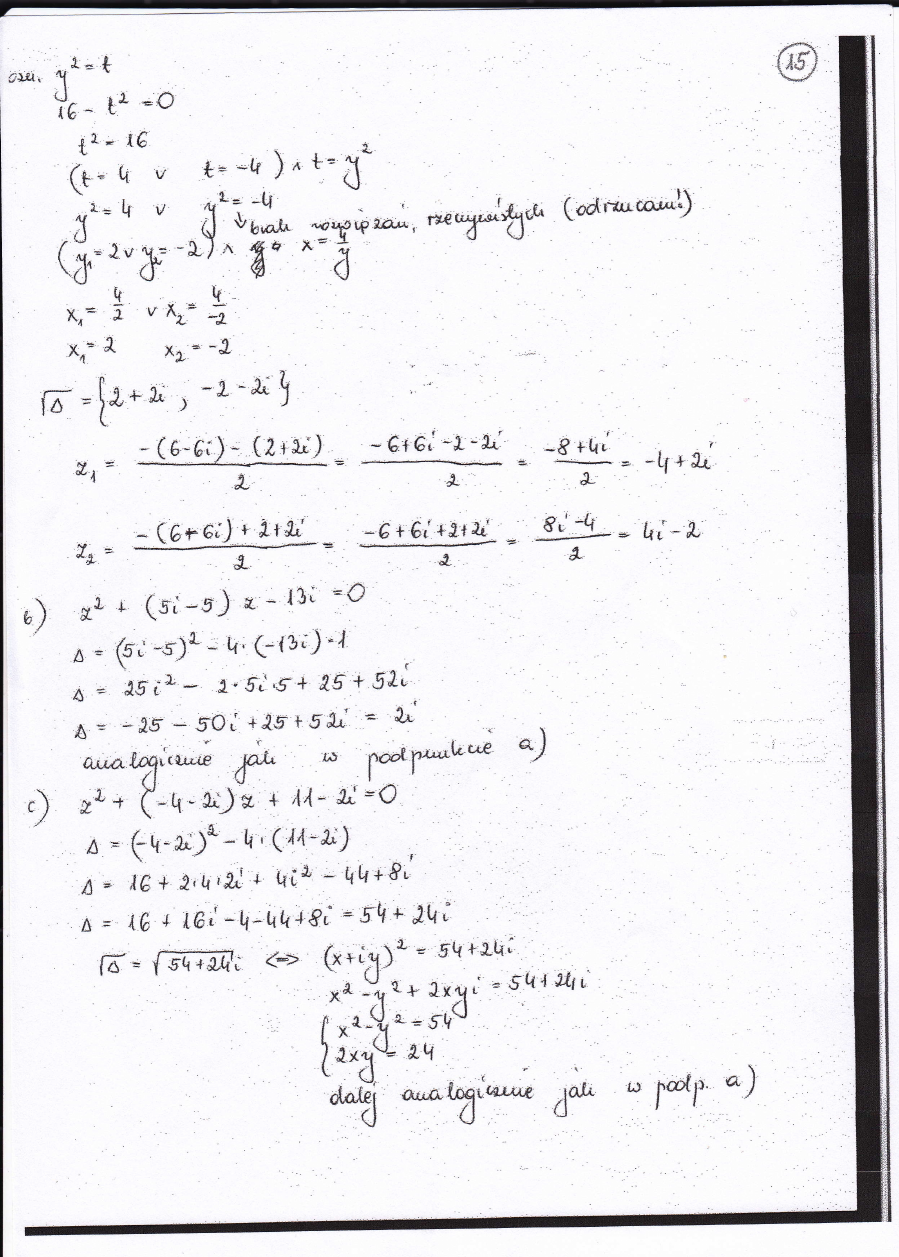 15
ozn. y² = t
16 - t² = 0
t² = 16
(t = 4 v t = -4) ∧ t = y²
y² = 4 v y² = -4
↳ brak rozwiązań, rzeczywistych (odrzucam!)
(y₁ = 2 v y₂ = -2) ∧ x = 4/y
x₁ = 4/2 v x₂ = 4/-2
x₁ = 2 x₂ = -2
√Δ = {2 + 2i, -2 - 2i}
z₁ = (-(6-6i) - (2+2i))/2 = (-6+6i-2-2i)/2 = (-8+4i)/2 = -4+2i
z₂ = (-(6-6i)+2+2i)/2 = (-6+6i+2+2i)/2 = (8i-4)/2 = 4i-2
b) z² + (5i-5) z - 13i = 0
Δ = (5i-5)² - 4·(-13i)·1
Δ = 25i² - 2·5i·5 + 25 + 52i
Δ = -25 - 50i + 25 + 52i = 2i
analogicznie jak w podpunkcie a)
c) z² + (-4-2i) z + 11 - 2i = 0
Δ = (-4-2i)² - 4·(11-2i)
Δ = 16 + 2·4·2i + 4i² - 44 + 8i
Δ = 16 + 16i - 4 - 44 + 8i = 54 + 24i
√Δ = √54+24i <=> (x+iy)² = 54+24i
x² - y² + 2xyi = 54+24i
{ x² - y² = 54
2xy = 24
dalej analogicznie jak w podp. a)